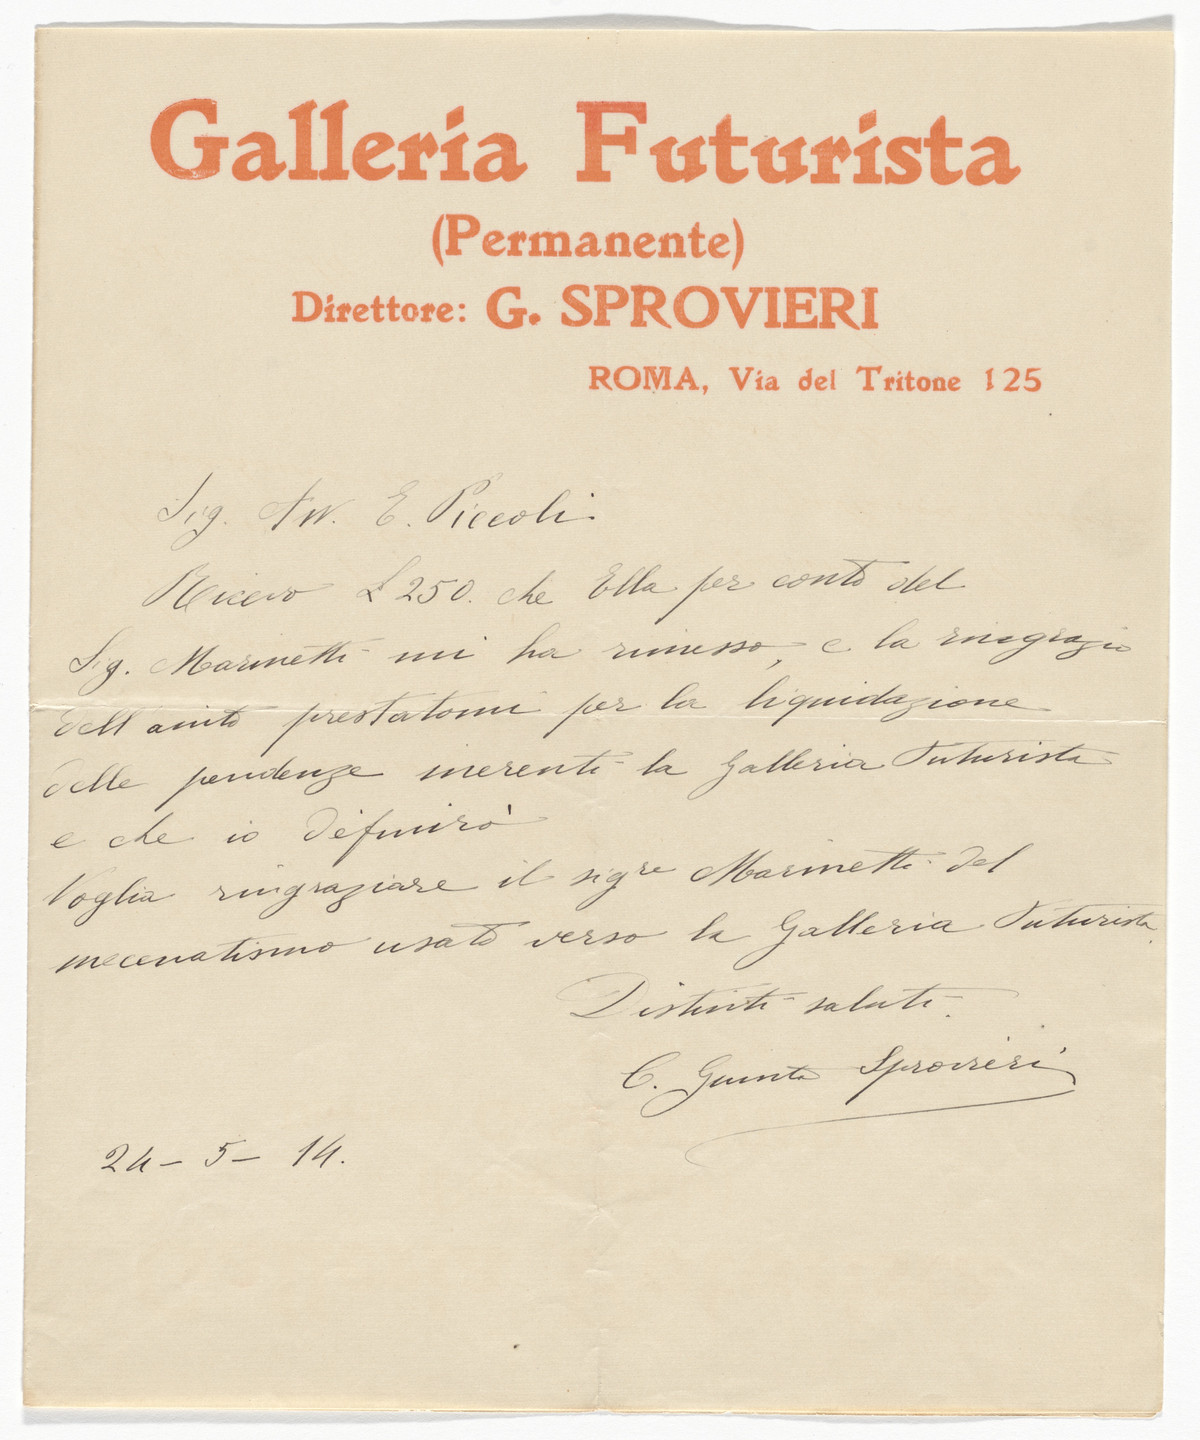 Galleria Futurista
(Permanente)
Direttore: G. SPROVIERI
ROMA, Via del Tritone 125
Sig. Avv. E. Piccoli
Ricevo £ 250. che Ella per conto del
Sig. Marinetti mi ha rimesso, e la ringrazio
dell'aiuto prestatomi per la liquidazione
delle pendenze inerenti la Galleria Futurista
e che io definirò
Voglia ringraziare il sigre Marinetti del
mecenatismo usato verso la Galleria Futurista.
Distinti saluti.
C. Giunta Sprovieri
24 - 5 - 14.